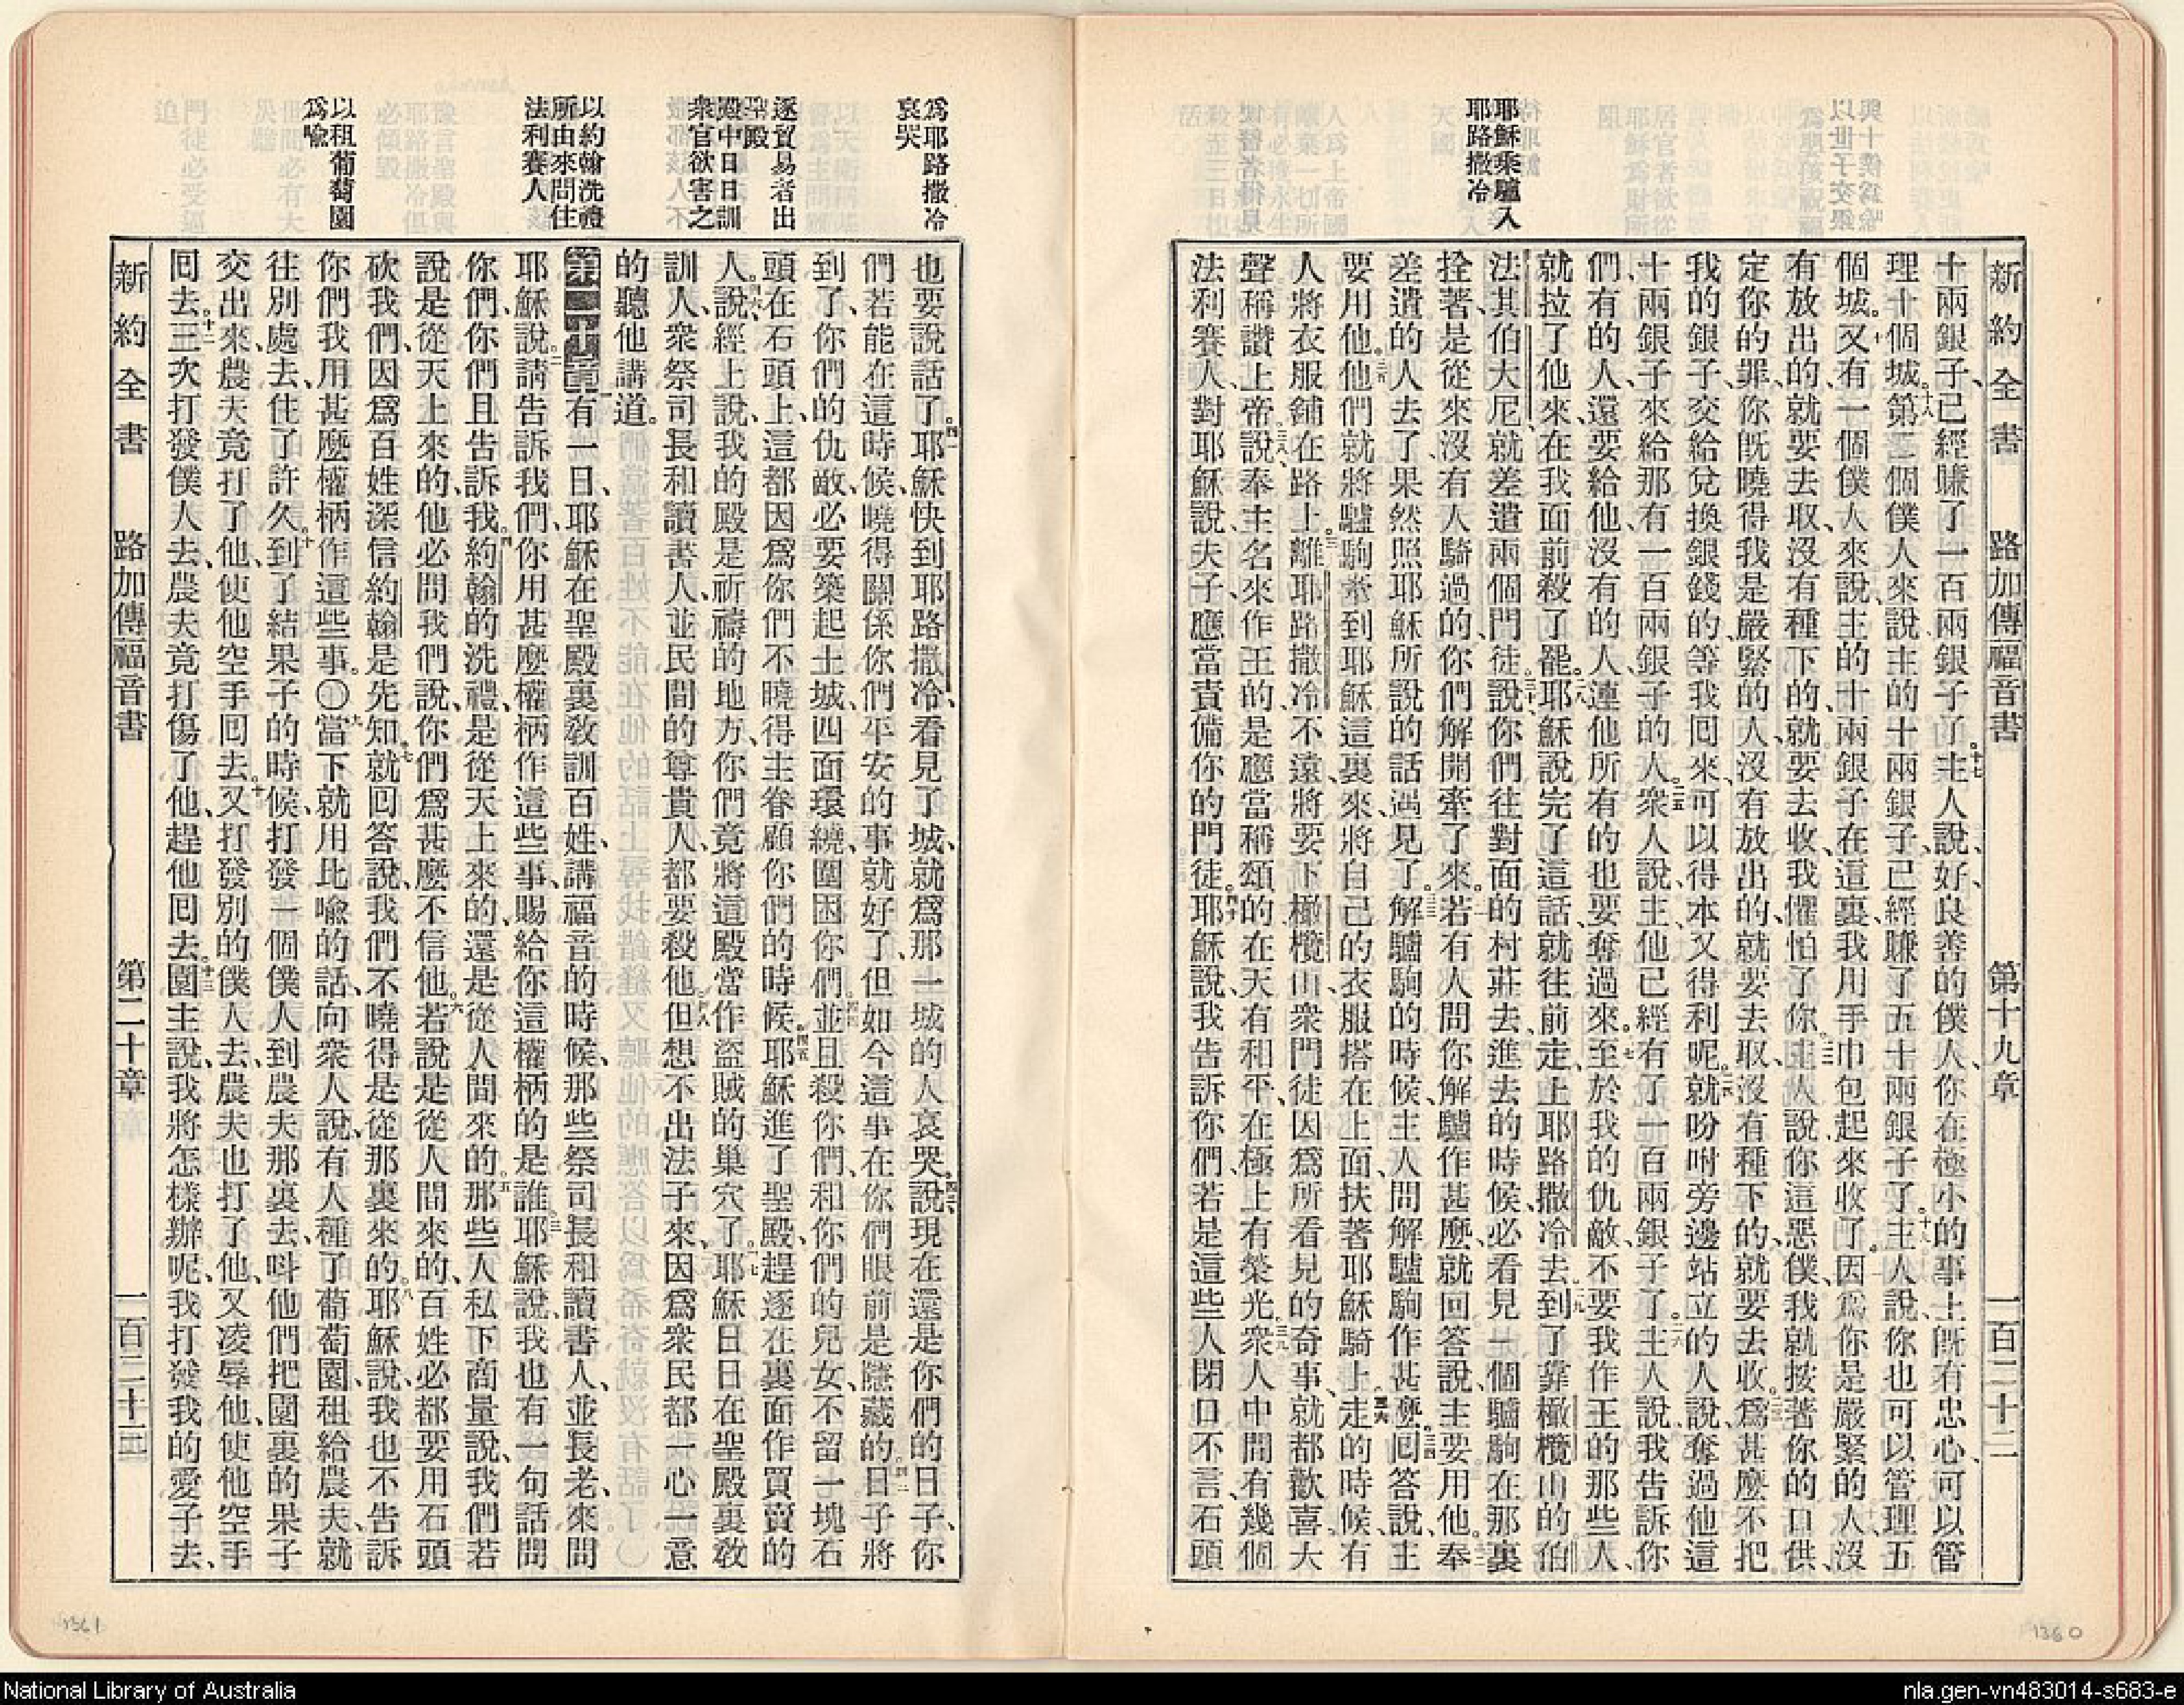 新約全書 路加傳福音書 第十九章 一百二十二
耶穌乘驢入
耶路撒冷
十兩銀子、已經賺了一百兩銀子了。主人說、好、良善的僕人、你在極小的事上旣有忠心、可以管
理十個城。第二個僕人來說、主的十兩銀子、已經賺了五十兩銀子了。主人說、你也可以管理五
個城。又有一個僕人來說、主的十兩銀子在這裏、我用手巾包起來收了。因爲你是嚴緊的人、沒
有放出的、就要去取、沒有種下的、就要去收、我懼怕了你。主人說、你這惡僕、我就按著你的口供、
定你的罪、你旣曉得我是嚴緊的人、沒有放出的、就要去取、沒有種下的、就要去收。爲甚麼不把
我的銀子、交給兌換銀錢的、等我囘來、可以得本又得利呢。就吩咐旁邊站立的人說、奪過他這
十兩銀子來、給那有一百兩銀子的人。衆人說、主、他已經有了一百兩銀子了。主人說、我告訴你
們、有的人、還要給他、沒有的人、連他所有的也要奪過來。至於我的仇敵、不要我作王的那些人、
就拉了他來、在我面前殺了罷。耶穌說完了這話、就往前走、上耶路撒冷去。到了靠橄欖山的伯
法其伯大尼、就差遣兩個門徒、說、你們往對面的村莊去、進去的時候、必看見一個驢駒在那裏
拴著、是從來沒有人騎過的、你們解開牽了來。若有人問你、解驢作甚麼、就回答說、主要用他。奉
差遣的人去了、果然照耶穌所說的話遇見了。解驢駒的時候、主人問、解驢駒作甚麼。囘答說、主
要用他。他們就將驢駒牽到耶穌這裏來、將自己的衣服搭在上面、扶著耶穌騎上。走的時候、有
人將衣服鋪在路上。離耶路撒冷不遠、將要下橄欖山、衆門徒因爲所看見的奇事、就都歡喜、大
聲稱讚上帝。說、奉主名來作王的、是應當稱頌的、在天有和平、在極上有榮光。衆人中間有幾個
法利賽人、對耶穌說、夫子、應當責備你的門徒。耶穌說、我告訴你們、若是這些人閉口不言、石頭
爲耶路撒冷
哀哭
逐貿易者出
聖殿
殿中日日訓
衆官欲害之
以約翰洗禮
所由來問住
法利賽人
以租葡萄園
爲喩
也要說話了。耶穌快到耶路撒冷、看見了城、就爲那一城的人哀哭、說、現在還是你們的日子、你
們若能在這時候、曉得關係你們平安的事就好了、但如今這事在你們眼前是隱藏的。日子將
到了、你們的仇敵、必要築起土城、四面環繞、圍困你們。並且殺你們、和你們的兒女、不留一塊石
頭在石頭上、這都因爲你們不曉得主眷顧你們的時候。耶穌進了聖殿、趕逐在裏面作買賣的
人。說、經上說、我的殿是祈禱的地方、你們竟將這殿當作盜賊的巢穴了。耶穌日日在聖殿裏敎
訓人、衆祭司長和讀書人、並民間的尊貴人、都要殺他。但想不出法子來、因爲衆民都一心一意
的聽他講道。
第二十章有一日、耶穌在聖殿裏敎訓百姓、講福音的時候、那些祭司長和讀書人、並長老、來問
耶穌說。請告訴我們、你用甚麼權柄作這些事、賜給你這權柄的是誰。耶穌說、我也有一句話問
你們、你們且告訴我。約翰的洗禮、是從天上來的、還是從人間來的。那些人私下商量說、我們若
說是從天上來的、他必問我們說、你們爲甚麼不信他。若說是從人間來的、百姓必都要用石頭
砍我們、因爲百姓深信約翰是先知。就囘答說、我們不曉得是從那裏來的。耶穌說、我也不告訴
你們、我用甚麼權柄作這些事。〇當下就用比喩的話、向衆人說、有人種了葡萄園、租給農夫、就
往別處去、住了許久。到了結果子的時候、打發一個僕人到農夫那裏去、呌他們把園裏的果子
交出來、農夫竟打了他、使他空手囘去。又打發別的僕人去、農夫也打了他、又凌辱他、使他空手
囘去。三次打發僕人去、農夫竟打傷了他、趕他囘去。園主說、我將怎樣辦呢、我打發我的愛子去、
新約全書 路加傳福音書 第二十章 一百二十三
1361
1360
National Library of Australia
nla.gen-vn483014-s683-e